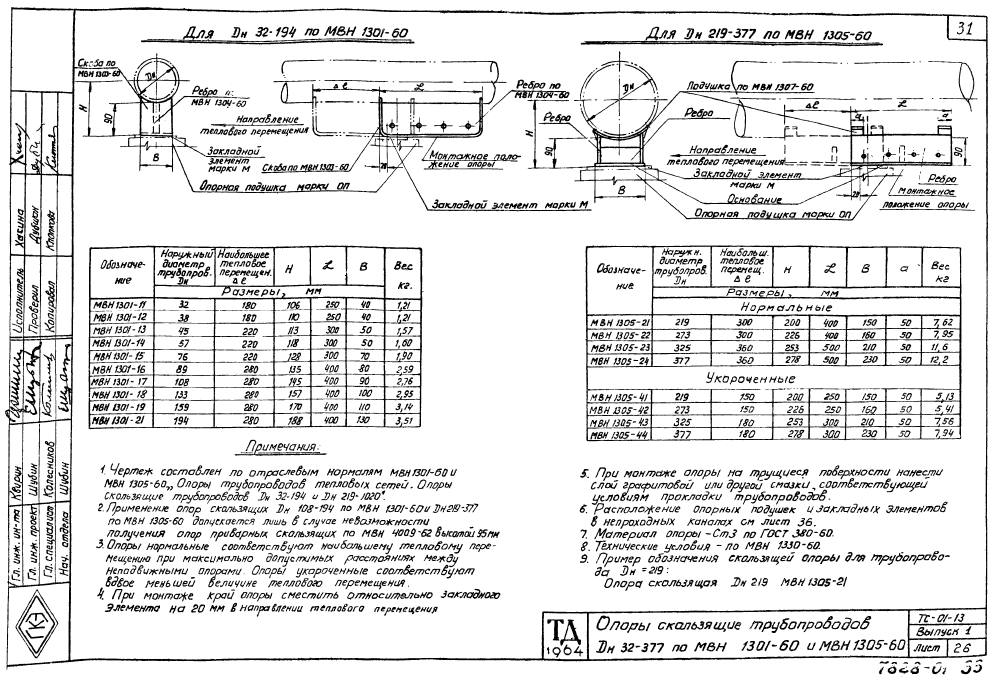 31
Для Dн 32-194 по МВН 1301-60
Для Dн 219-377 по МВН 1305-60
Скоба по
МВН 1303-60
Dн
Н
90
В
Ребро п:
МВН 1304-60
Направление
теплового перемещения
Закладной
элемент
марки М
Скоба по МВН 1303-60
Опорная подушка марки ОП
Δℓ
ℒ
20
Ребро по
МВН 1304-60
Монтажное поло-
жение опоры
Закладной элемент марки М
Dн
Н
90
В
Ребро
Ребро
Подушка по МВН 1307-60
Δℓ
ℒ
а
а
90
20
Направление
теплового перемещения
Закладной элемент
марки М
Основание
Опорная подушка марки ОП
Ребро
Монтажное
положение опоры
Обозначе-
ние
Наружный диаметр трубопров. Dн
Наибольшее тепловое перемещен. Δℓ
Н ℒ В
Вес кг.
Размеры, мм
МВН 1301-11 32 180 106 250 40 1,21
МВН 1301-12 38 180 110 250 40 1,21
МВН 1301-13 45 220 113 300 50 1,57
МВН 1301-14 57 220 118 300 50 1,60
МВН 1301-15 76 220 128 300 70 1,90
МВН 1301-16 89 280 135 400 80 2,59
МВН 1301-17 108 280 145 400 90 2,76
МВН 1301-18 133 280 157 400 100 2,95
МВН 1301-19 159 280 170 400 110 3,14
МВН 1301-21 194 280 188 400 130 3,51
Обозначе-
ние
Наружн. диаметр трубопров. Dн
Наибольш. тепловое перемещ. Δℓ
Н ℒ В а
Вес кг
Размеры, мм
Нормальные
МВН 1305-21 219 300 200 400 150 50 7,62
МВН 1305-22 273 300 226 400 160 50 7,95
МВН 1305-23 325 360 253 500 210 50 11,6
МВН 1305-24 377 360 278 500 230 50 12,2
Укороченные
МВН 1305-41 219 150 200 250 150 50 5,13
МВН 1305-42 273 150 226 250 160 50 5,41
МВН 1305-43 325 180 253 300 210 50 7,56
МВН 1305-44 377 180 278 300 230 50 7,94
Примечания:
1. Чертеж составлен по отраслевым нормалям МВН 1301-60 и
МВН 1305-60 „Опоры трубопроводов тепловых сетей. Опоры
скользящие трубопроводов Dн 32-194 и Dн 219-1020".
2. Применение опор скользящих Dн 108-194 по МВН 1301-60 и Dн 219-377
по МВН 1305-60 допускается лишь в случае невозможности
получения опор приварных скользящих по МВН 4009-62 высотой 95 мм
3. Опоры нормальные соответствуют наибольшему тепловому пере-
мещению при максимально допустимых расстояниях между
неподвижными опорами. Опоры укороченные соответствуют
вдвое меньшей величине теплового перемещения.
4. При монтаже край опоры сместить относительно закладного
элемента на 20 мм в направлении теплового перемещения
5. При монтаже опоры на трущиеся поверхности нанести
слой графитовой или другой смазки, соответствующей
условиям прокладки трубопроводов.
6. Расположение опорных подушек и закладных элементов
в непроходных каналах см лист 36.
7. Материал опоры - Ст3 по ГОСТ 380-60.
8. Технические условия - по МВН 1330-60
9. Пример обозначения скользящей опоры для трубопрово-
да Dн = 219:
Опора скользящая Dн 219 МВН 1305-21
ТД
1964
Опоры скользящие трубопроводов
Dн 32-377 по МВН 1301-60 и МВН 1305-60
ТС-01-13
Выпуск 1
Лист 26
7828-01 33
Исполнитель Хасина
Проверил
Копировал
Гл. инж. ин-та Кваран
Гл. инж. проект Шубин
Гл. специалист Колесников
Нач. отдела Шубин
ГКЭ